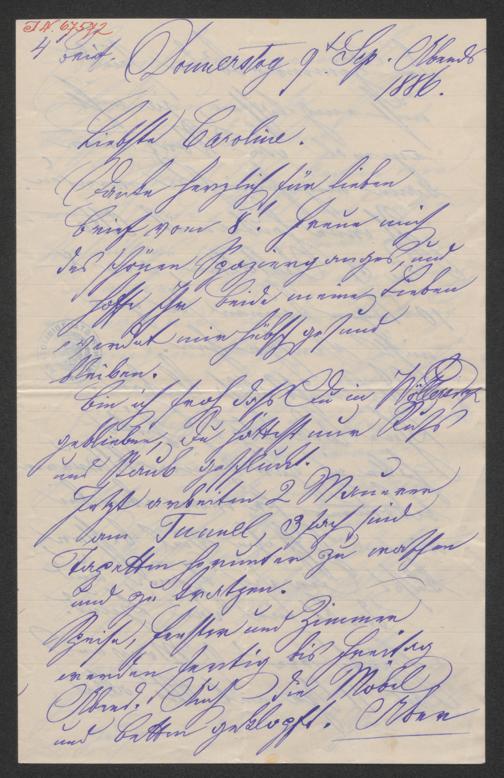 I.N. 67572
4 Brief.
Donnerstag 9t Sep. Abends
1886.
Liebste Caroline.
Danke herzlich für lieben
Brief vom 8t. Freue mich
des schönen Spazierganges, und
hoffe Ihr beide meine Lieben
werdet mir hübsch gesund
bleiben.
Bin ich froh dass Du in
geblieben, Du hättest nur Russ
und Staub geschluckt.
Jetzt arbeiten 2 Maurer
am Tunnell, 3fach sind
Tapetten herunter zu waschen
und zu kratzen.
Speise, Fenster und Zimmer
werden fertig bis Freitag
Abend. Auch die Möbel
und Betten geklopft. Aber